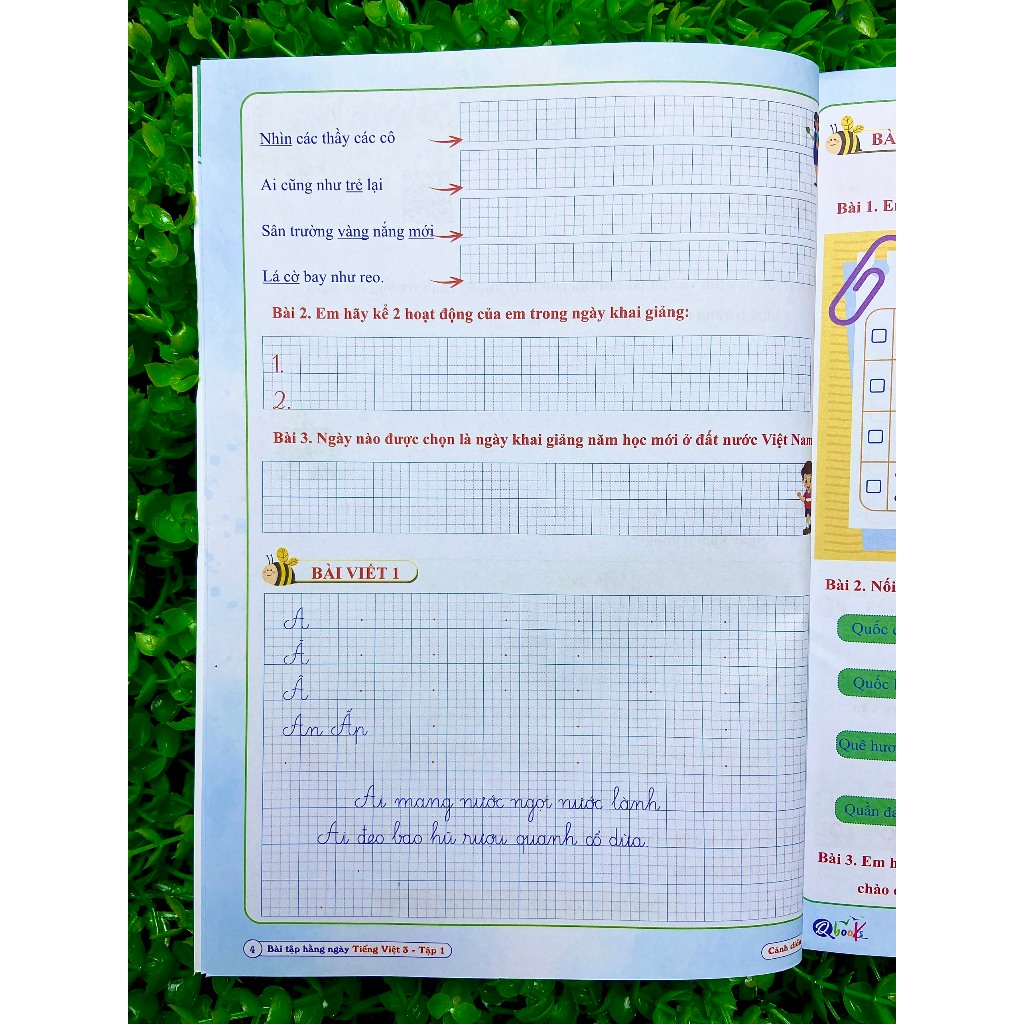 Nhìn các thầy các cô
Ai cũng như trẻ lại
Sân trường vàng nắng mới
Lá cờ bay như reo.
Bài 2. Em hãy kể 2 hoạt động của em trong ngày khai giảng:
1.
2.
Bài 3. Ngày nào được chọn là ngày khai giảng năm học mới ở đất nước Việt Nam
BÀI VIẾT 1
A
Ă
Â
An Ấp
Ai mang nước ngọt nước lành
Ai đeo bao hũ rượu quanh cổ dừa
4 Bài tập hằng ngày Tiếng Việt 3 - Tập 1
Cánh diều
BÀ
Bài 1. E
Bài 2. Nối
Quốc
Quốc
Quê hươ
Quần đ
Bài 3. Em h
chào
Qbooks